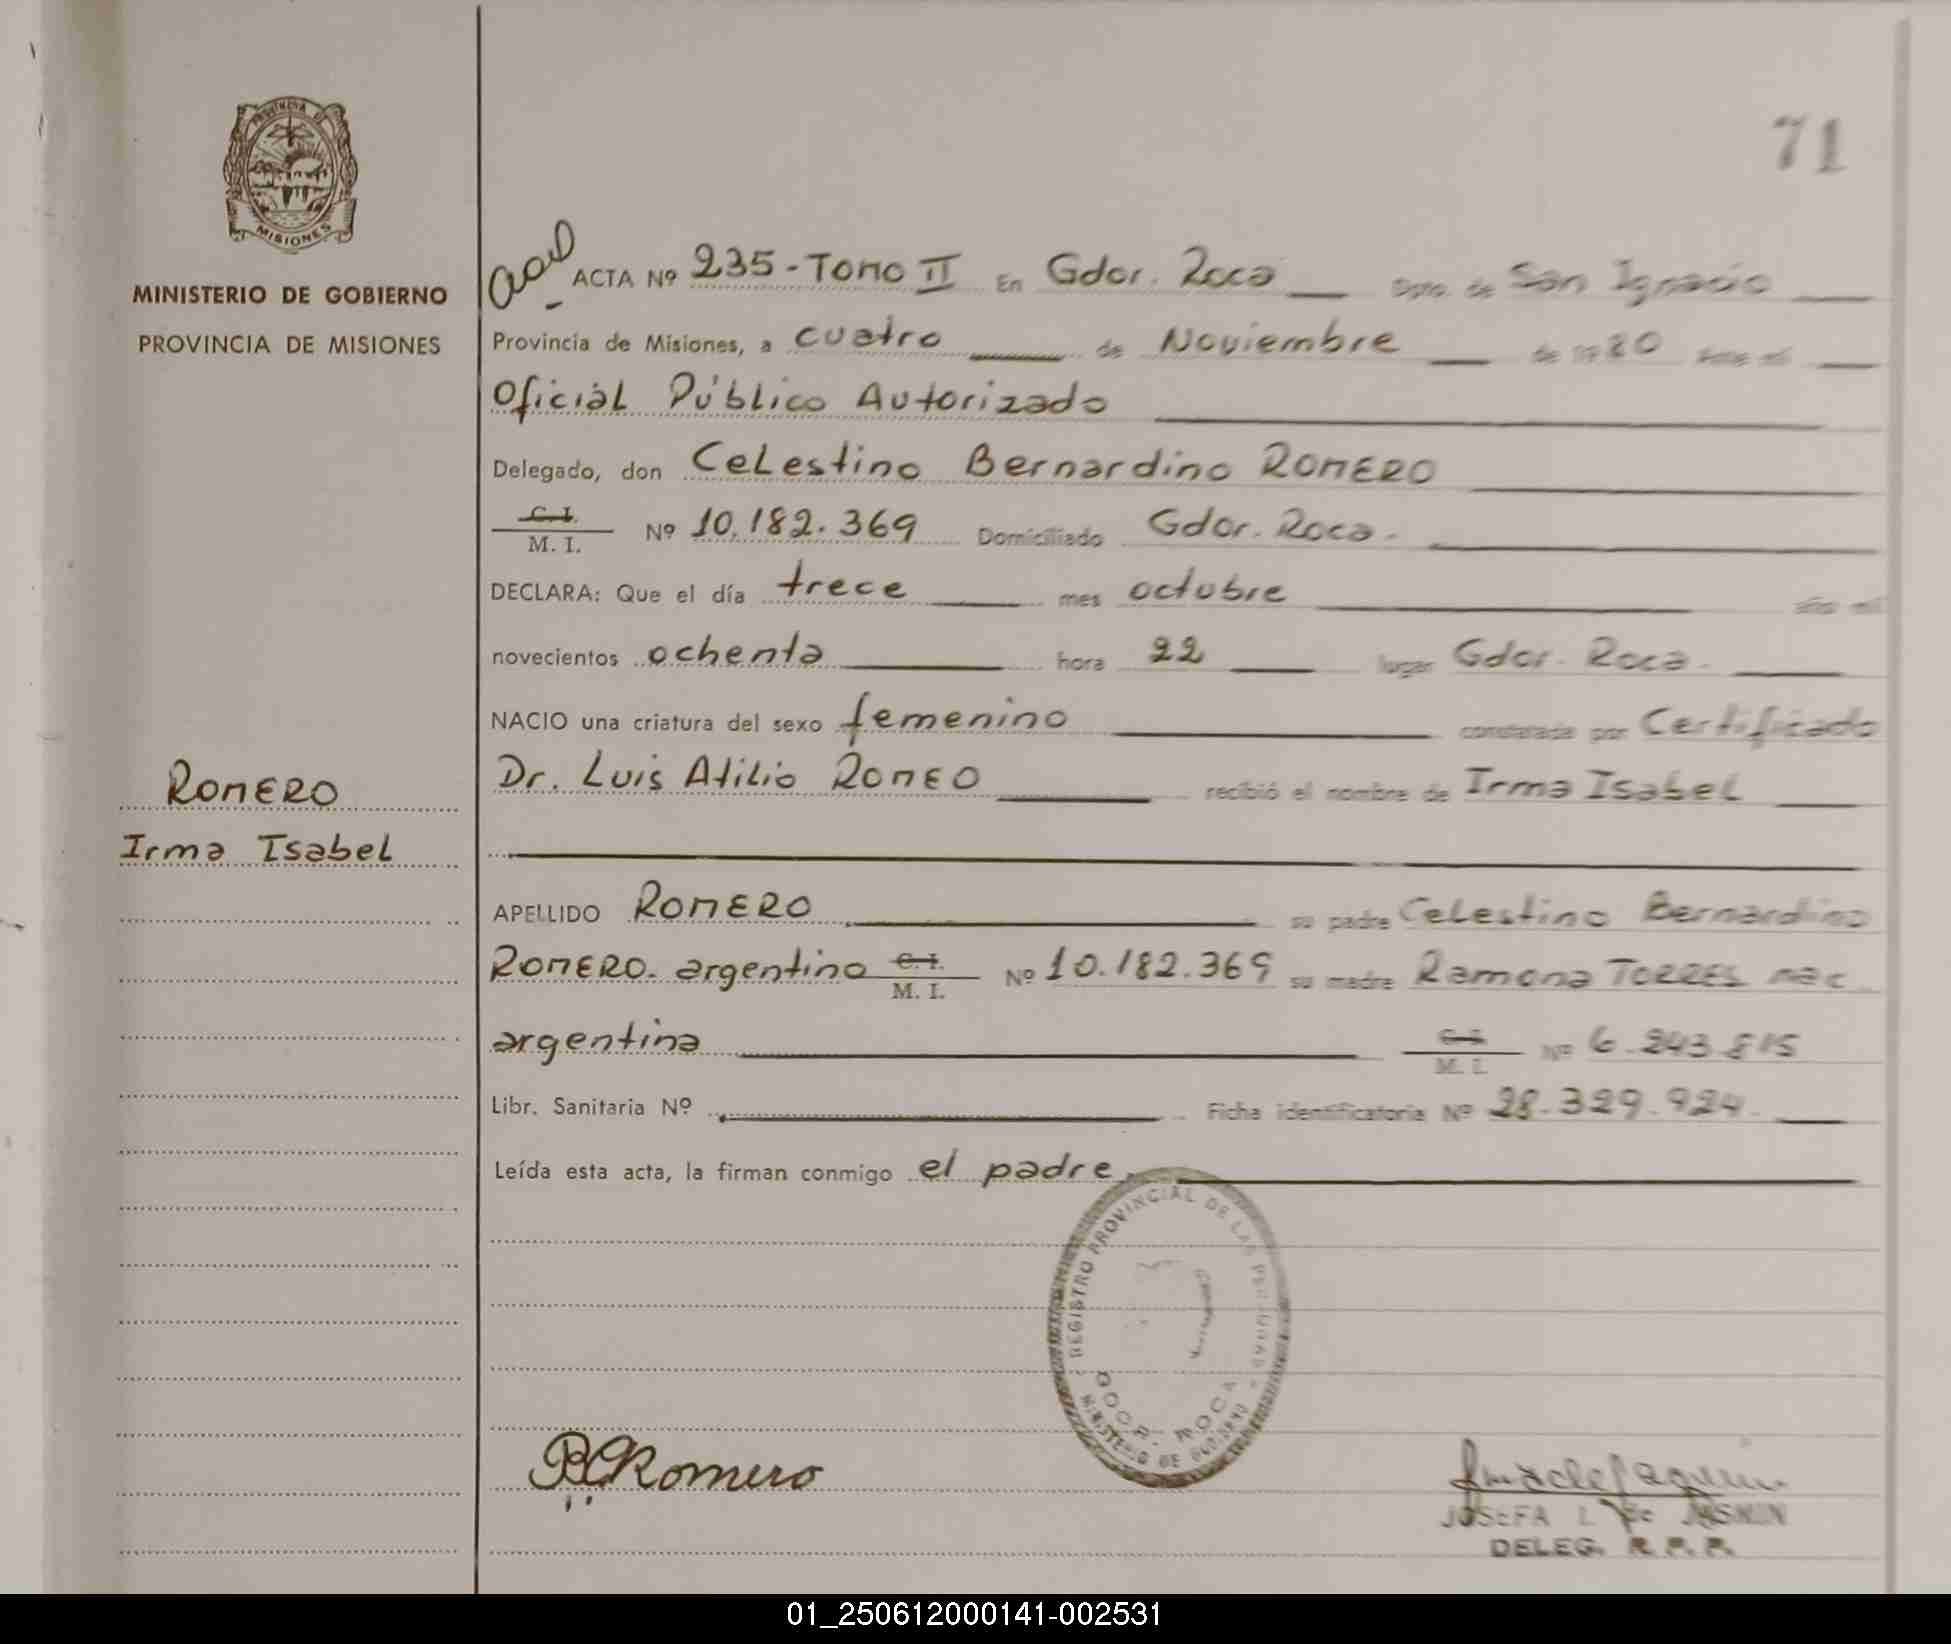 71
PROVINCIA DE
MISIONES
MINISTERIO DE GOBIERNO
PROVINCIA DE MISIONES
ACTA Nº 235 - Tomo II En Gdor. Roca Dpto. de San Ignacio
Provincia de Misiones, a cuatro de Noviembre de 1980 Ante mí
Oficial Público Autorizado
Delegado, don Celestino Bernardino ROMERO
C. I.
M. I. Nº 10.182.369 Domiciliado Gdor. Roca.
DECLARA: Que el día trece mes octubre año mil
novecientos ochenta hora 22 lugar Gdor. Roca.
NACIO una criatura del sexo femenino constatada por Certificado
Dr. Luis Atilio ROMEO recibió el nombre de Irma Isabel
ROMERO
Irma Isabel
APELLIDO ROMERO su padre Celestino Bernardino
ROMERO. argentino C. I. Nº 10.182.369 su madre Ramona TORRES nac
M. I.
argentina C. I. Nº 6.243.815
M. I.
Libr. Sanitaria Nº Ficha identificatoria Nº 28.329.924.
Leída esta acta, la firman conmigo el padre.
REGISTRO PROVINCIAL DE LAS PERSONAS
GDOR. ROCA
MINISTERIO DE GOBIERNO
BCRomero
JOSEFA I. de
DELEG. R. P. P.
01_250612000141-002531